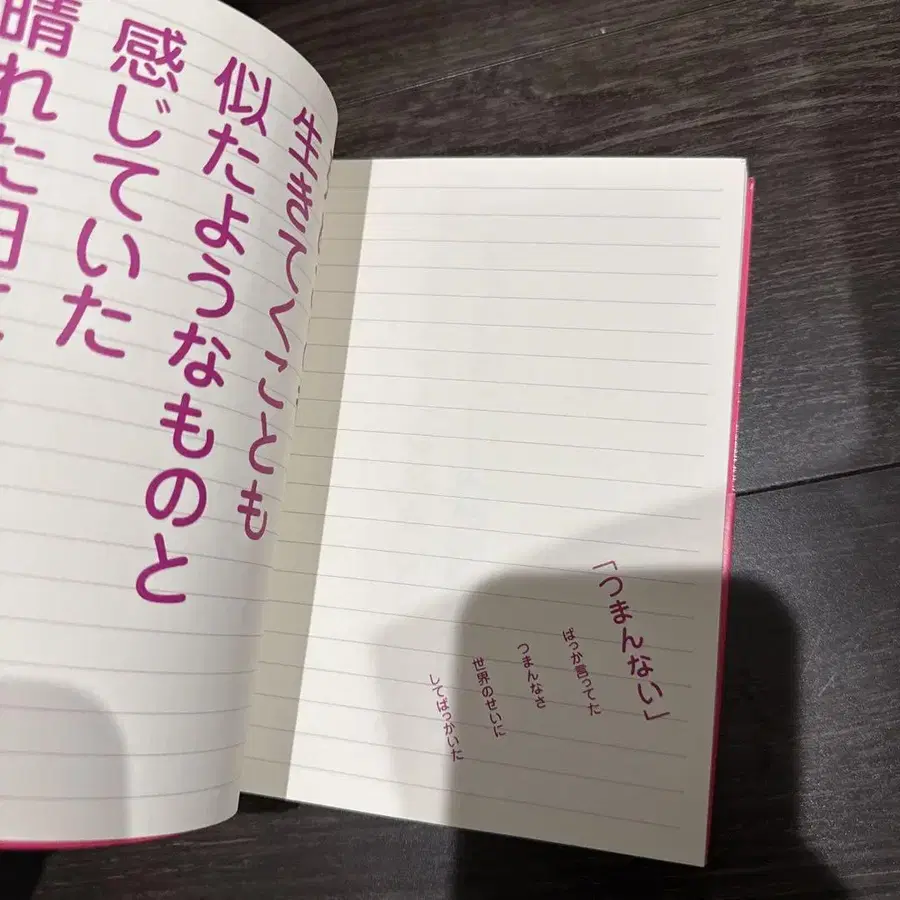 「つまんない」
ばっか言ってた
つまんなさ
世界のせいに
してばっかいた
生きてくことも
似たようなものと
感じていた
晴れた日